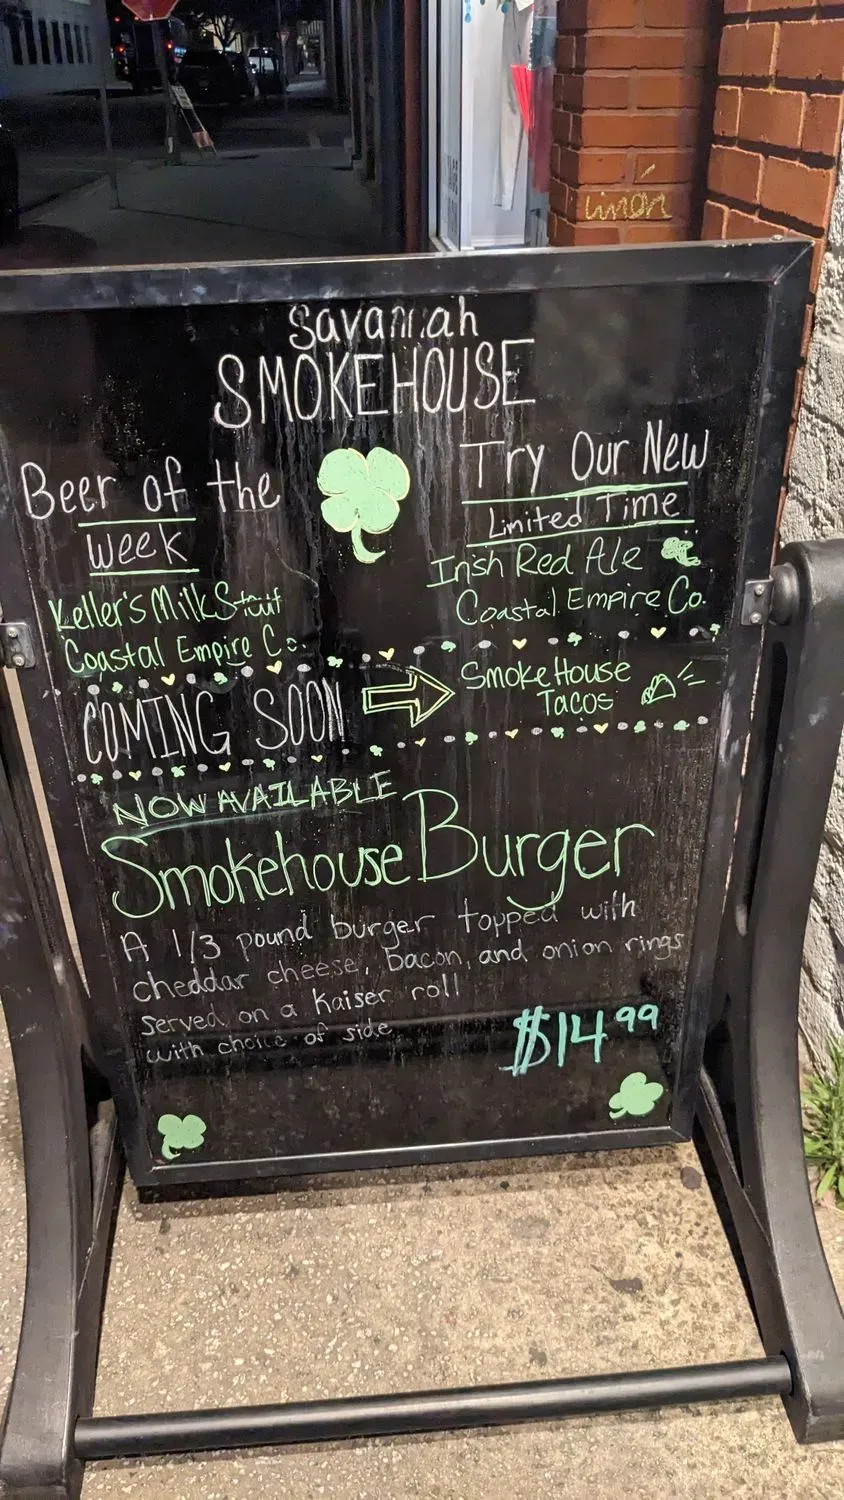 Savannah
SMOKEHOUSE
Beer of the
Week
Keller's Milk Stout
Coastal Empire Co.
Try Our New
Limited Time
Irish Red Ale
Coastal Empire Co.
COMING SOON
SmokeHouse
Tacos
NOW AVAILABLE
Smokehouse Burger
A 1/3 pound burger topped with
cheddar cheese, bacon, and onion rings
served on a Kaiser roll
with choice of side
$14.99